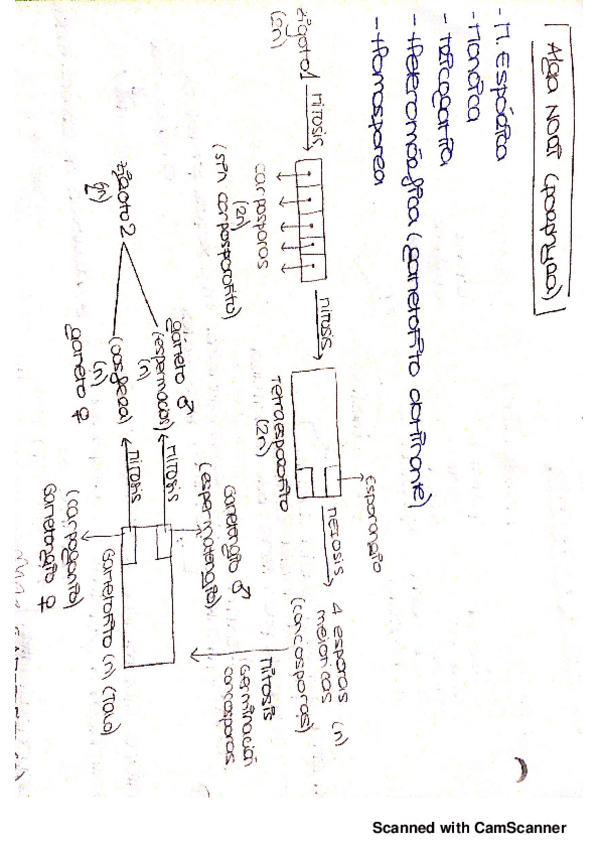 Alga Nori (poaphyca)
- M. Espórica
- Monoica
- Tricogamia
- Heteromórfica (gametofito dominante)
- Homosporea
zigoto 1
(2n)
mitosis
carposporos
(2n)
(sin carposporofito)
mitosis
tetraesporofito
(2n)
Esporangio
meiosis
4 esporas (n)
meioricas
(concosporas)
mitosis
germinación
concosporas
gametofito (n) (talo)
gametangio ♂
(espermatangio)
gametangio ♀
(carpogonio)
mitosis
mitosis
gameto ♂
(espermacios)
(n)
(oosfera)
(n)
gameto ♀
zigoto 2
(n)
Scanned with CamScanner